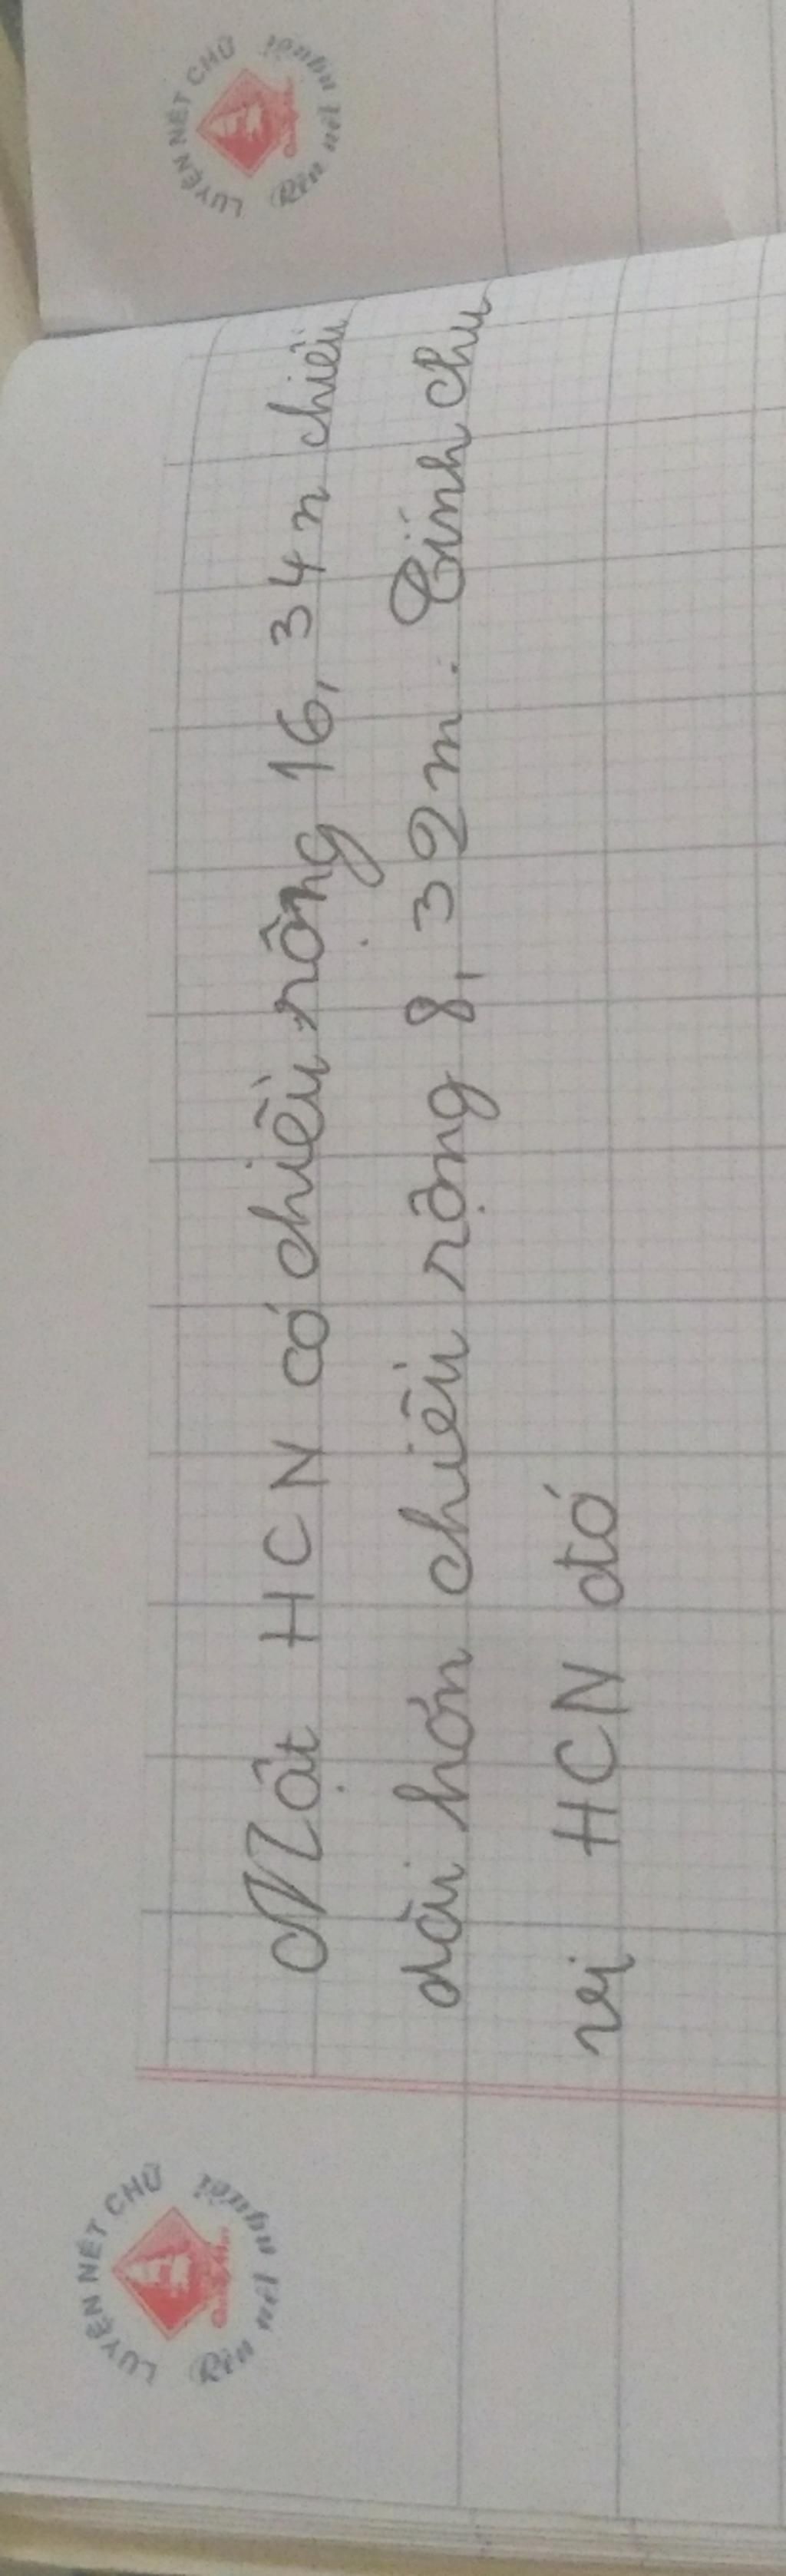 LUYỆN NÉT CHỮ
Rèn nết người
Một HCN có chiều rộng 16,34n chiều
dài hơn chiều rộng 8,32m. Tính chu
vi HCN đó
LUYỆN NÉT CHỮ
Rèn nết người